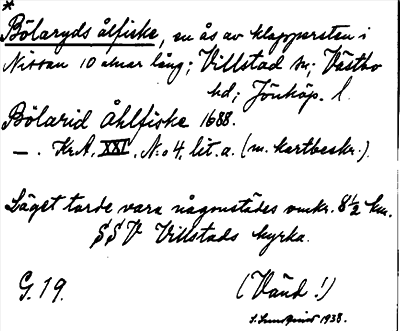 *
Bölaryds ålfiske, en ås av klappersten i
Nissan 10 alnar lång; Villstad sn; Västbo
hd; Jönköp. l.
Bölarid Åhlfiske 1688.
— . Kr.A. XXI, N:o 4, lit. a. (m. kartbeskr.).
Läget torde vara någonstädes omkr. 8½ km.
SSV Villstads kyrka.
G. 19. (Vänd!)
1938.